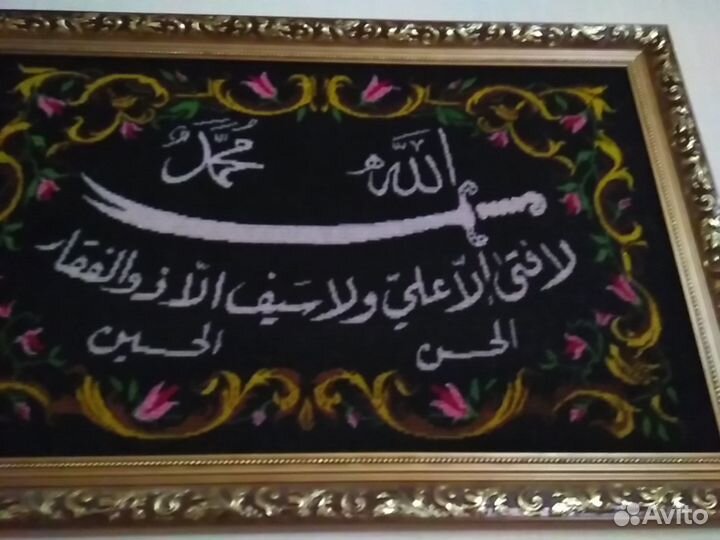 الله محمد
لا فتىٰ إلّا عليّ ولا سَيف الّا ذوالفقار
الحسن الحسين
Avito